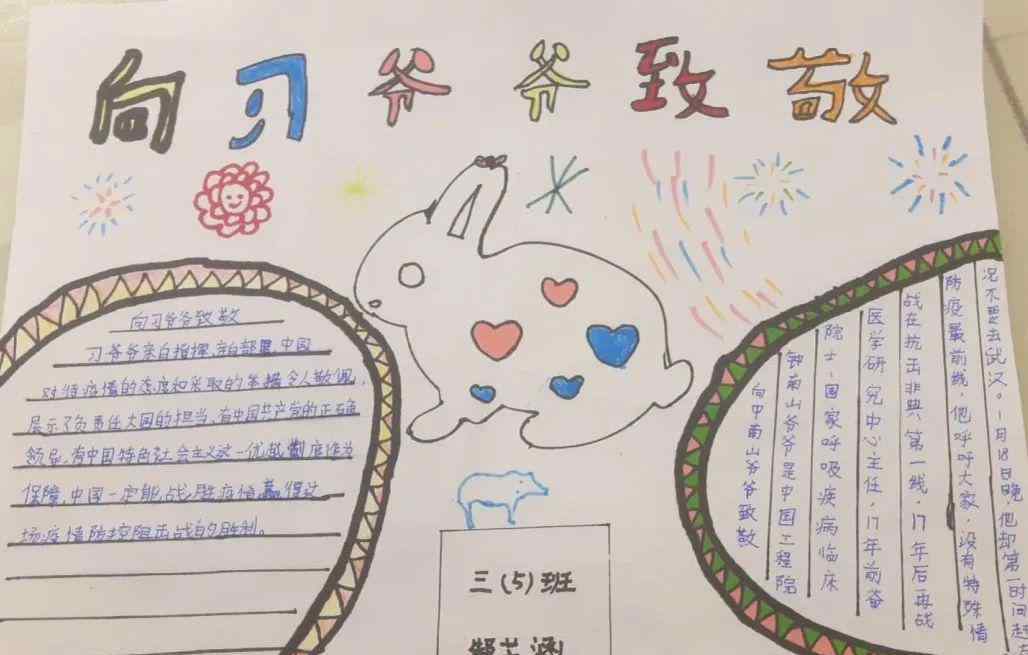 向习爷爷致敬
向习爷爷致敬
习爷爷亲自指挥,亲自部署,中国
对待疫情的态度和采取的举措令人敬佩,
展示了负责任大国的担当,有中国共产党的正确
领导,有中国特色社会主义这一优越制度作为
保障,中国一定能战胜疫情赢得这
场疫情防控阻击战的胜利。
向中南山爷爷致敬
钟南山爷爷是中国工程院
院士、国家呼吸疾病临床
医学研究中心主任,17年前奋
战在抗击非典第一线,17年后再战
防疫最前线,他呼呼大家,没有特殊情
况不要去武汉。1月18日晚他却第一时间赶
三(5)班